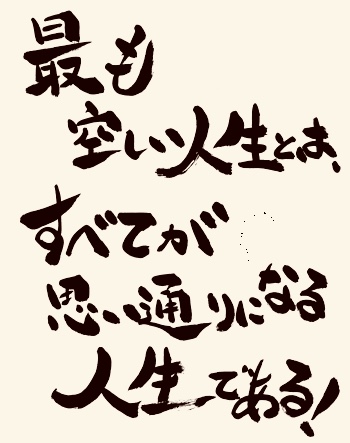 最も
空しい人生とは、
すべてが
思い通りになる
人生である!